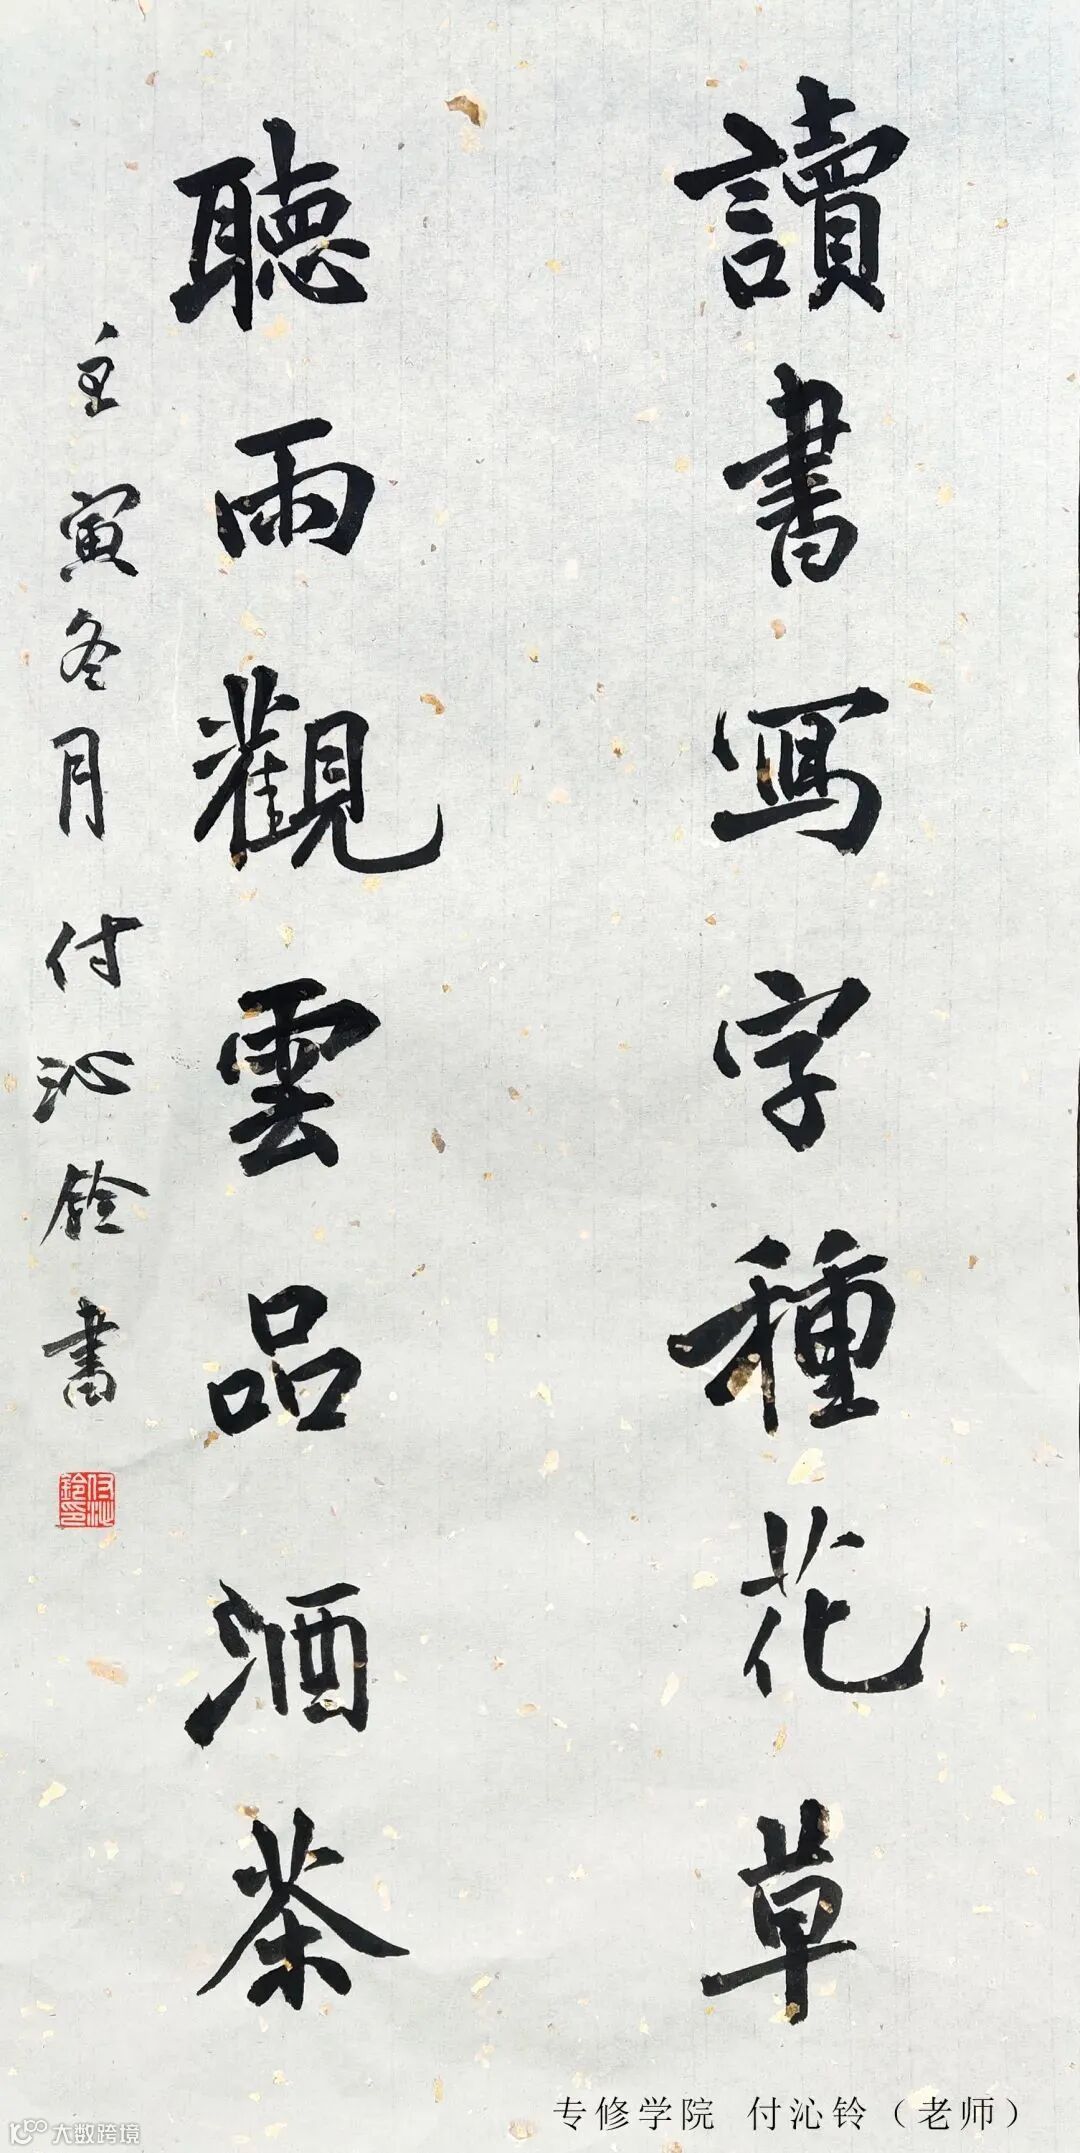 讀書寫字種花草
聽雨觀雲品酒茶
壬寅冬月 付沁鈴書
付沁鈴印
专修学院 付沁铃（老师）
大数跨境